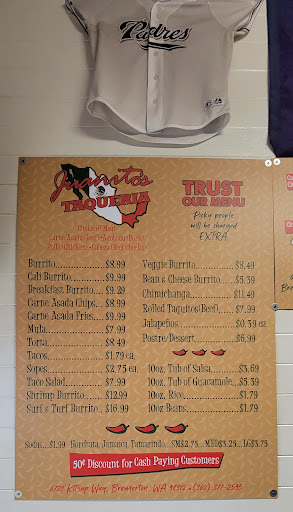 Padres
Juanito's
TAQUERIA
TRUST
OUR MENU
Picky people
will be charged
EXTRA
Choice of Meat
Burrito..............$8.99
Cali Burrito..........$9.99
Breakfast Burrito....$9.29
Carne Asada Chips...$8.99
Carne Asada Fries....$9.99
Mula.................$7.99
Torta................$8.49
Tacos................$1.79 ea.
Sopes...............$2.75 ea.
Taco Salad...........$7.99
Shrimp Burrito......$12.99
Surf & Turf Burrito...$16.99
Veggie Burrito..........$8.49
Bean & Cheese Burrito....$5.39
Chimichanga.............$11.49
Rolled Taquitos(Beef)....$7.99
Jalapeños................$0.39 ea
Postre/Dessert...........$6.99
10oz. Tub of Salsa........$3.69
10oz. Tub of Guacamole...$5.39
10oz. Rice...............$1.79
10oz Beans..............$1.79
Sodas...$1.99 Horchata, Jamaica, Tamarindo SM$2.75 MED$3.25...LG$3.75
50¢ Discount for Cash Paying Customers
6727 Kitsap Way, Bremerton, WA 98312 • (360) 377-2595